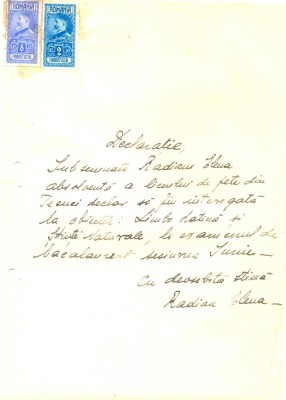 ROMANIA
ROMANIA
3
2
TIMBRU FISCAL
TIMBRU FISCAL
Declaratie,
Subsemnata Radian Elena
absolventă a liceului de fete din
Tecuci declar să fiu interogată
la obiectele: Limba Latină și
Științi Naturale, la examenul de
bacalaureat sesiunea Iunie —
Cu deosebită stimă
Radian Elena —